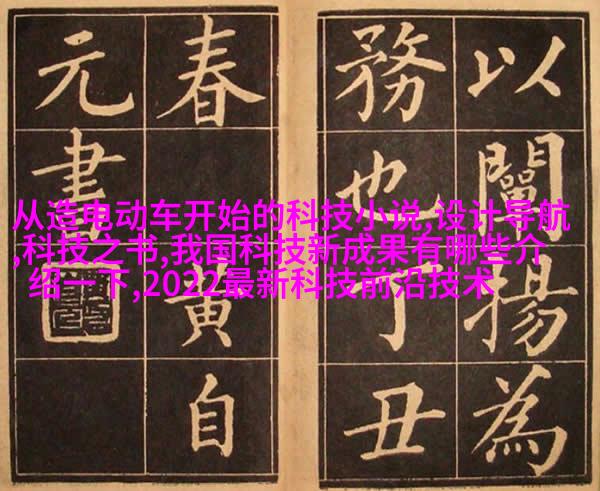 以闡揚為
務也丁丑
春 黃自
元書
从造电动车开始的科技小说,设计导航
,科技之书,我国科技新成果有哪些介
绍一下,2022最新科技前沿技术